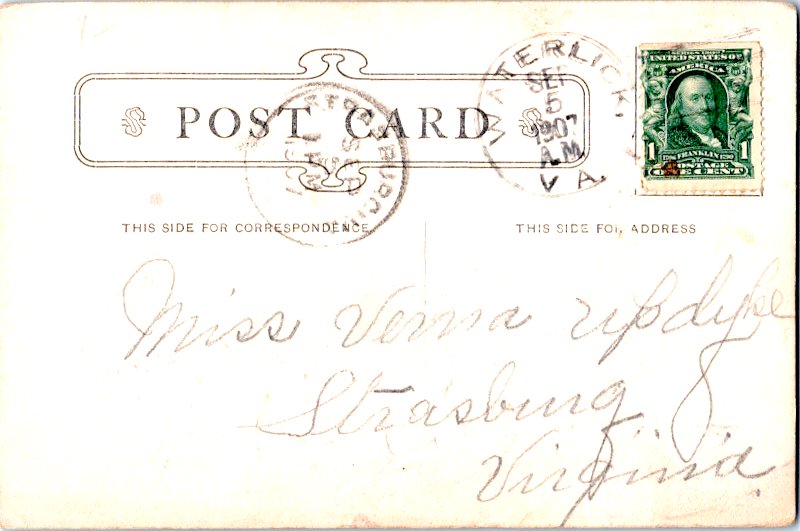 POST CARD
WATERLICK,
SEP
5
1907
A.M.
VA.
SERIES 1902
UNITED STATES OF
AMERICA
1706 FRANKLIN 1790
1 1
POSTAGE
ONE CENT
THIS SIDE FOR CORRESPONDENCE
THIS SIDE FOR ADDRESS
Miss Verna Updyke
Strasburg
Virginia